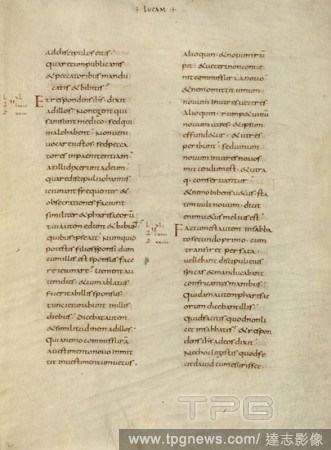 + LUCAM +
addiscipulos eius
quare cum publicanis
& peccatoribus mandu
catis & bibitis
Et respondens ihs dixit
adillos Non egent qui
sani sunt medico sed qui
male habent Non ueni
uocare iustos sed pecca
tores in paenitentiam
At illi dixerunt ad eum
quare discipuli iohannis
ieiunant frequenter &
obsecrationes faciunt
similiter & pharisaeorū
tui autem edunt & bibunt
quibus ipse ait Numquid
potestis filios sponsi dum
cum illis est sponsus face
re ieiunare Uenient au
tem dies & cum ablatus
fuerit ab illis sponsus
tunc ieiunabunt in illis
diebus Dicebat autem
& similitudinem ad illos
Quia nemo commissurā
a uestimento nouo inmit
tit in uestimentum uetus
alioquin & nouum rū
pit & ueteri non conue
nit commissura a nouo
& nemo mittit uinum
nouum in utres ueteres
alioquin rumpit uinū
nouum utres & ipsum
effund&ur & utres
peribunt sed uinum
nouum in utres nouos
mittendum est & utra
que conseruantur
& nemo bibens uetus sta
tim uult nouum dicit
enim uetus melius est
Factum est autem in sabba
to secundo primo cum
transiret per sata
uellebant discipuli eius
spicas & manducabant
confricantes manibus
Quidam autem pharisae
orum dicebant illis
Quid facitis quod non li
cet in sabbatis & respon
dens ihs ad eos dixit
Nec hoc legistis quod fe
cit dauid cum esurisset
TPG
www.tpgnews.com / 達志影像